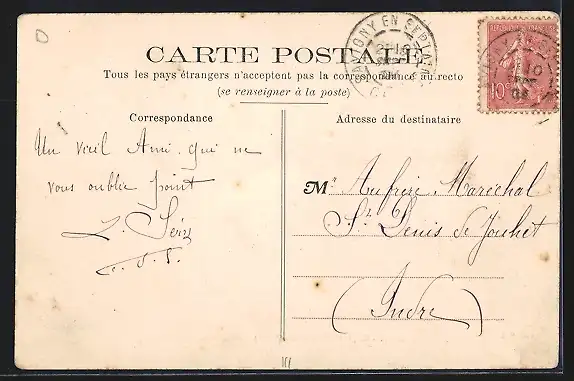 CARTE POSTALE
Tous les pays étrangers n'acceptent pas la correspondance au recto
(se renseigner à la poste)
Correspondance
Adresse du destinataire
Un vieil Ami qui ne
vous oublie point
L.
Mr Aufrère Maréchal
St Denis de Jouhet
(Indre)
10c